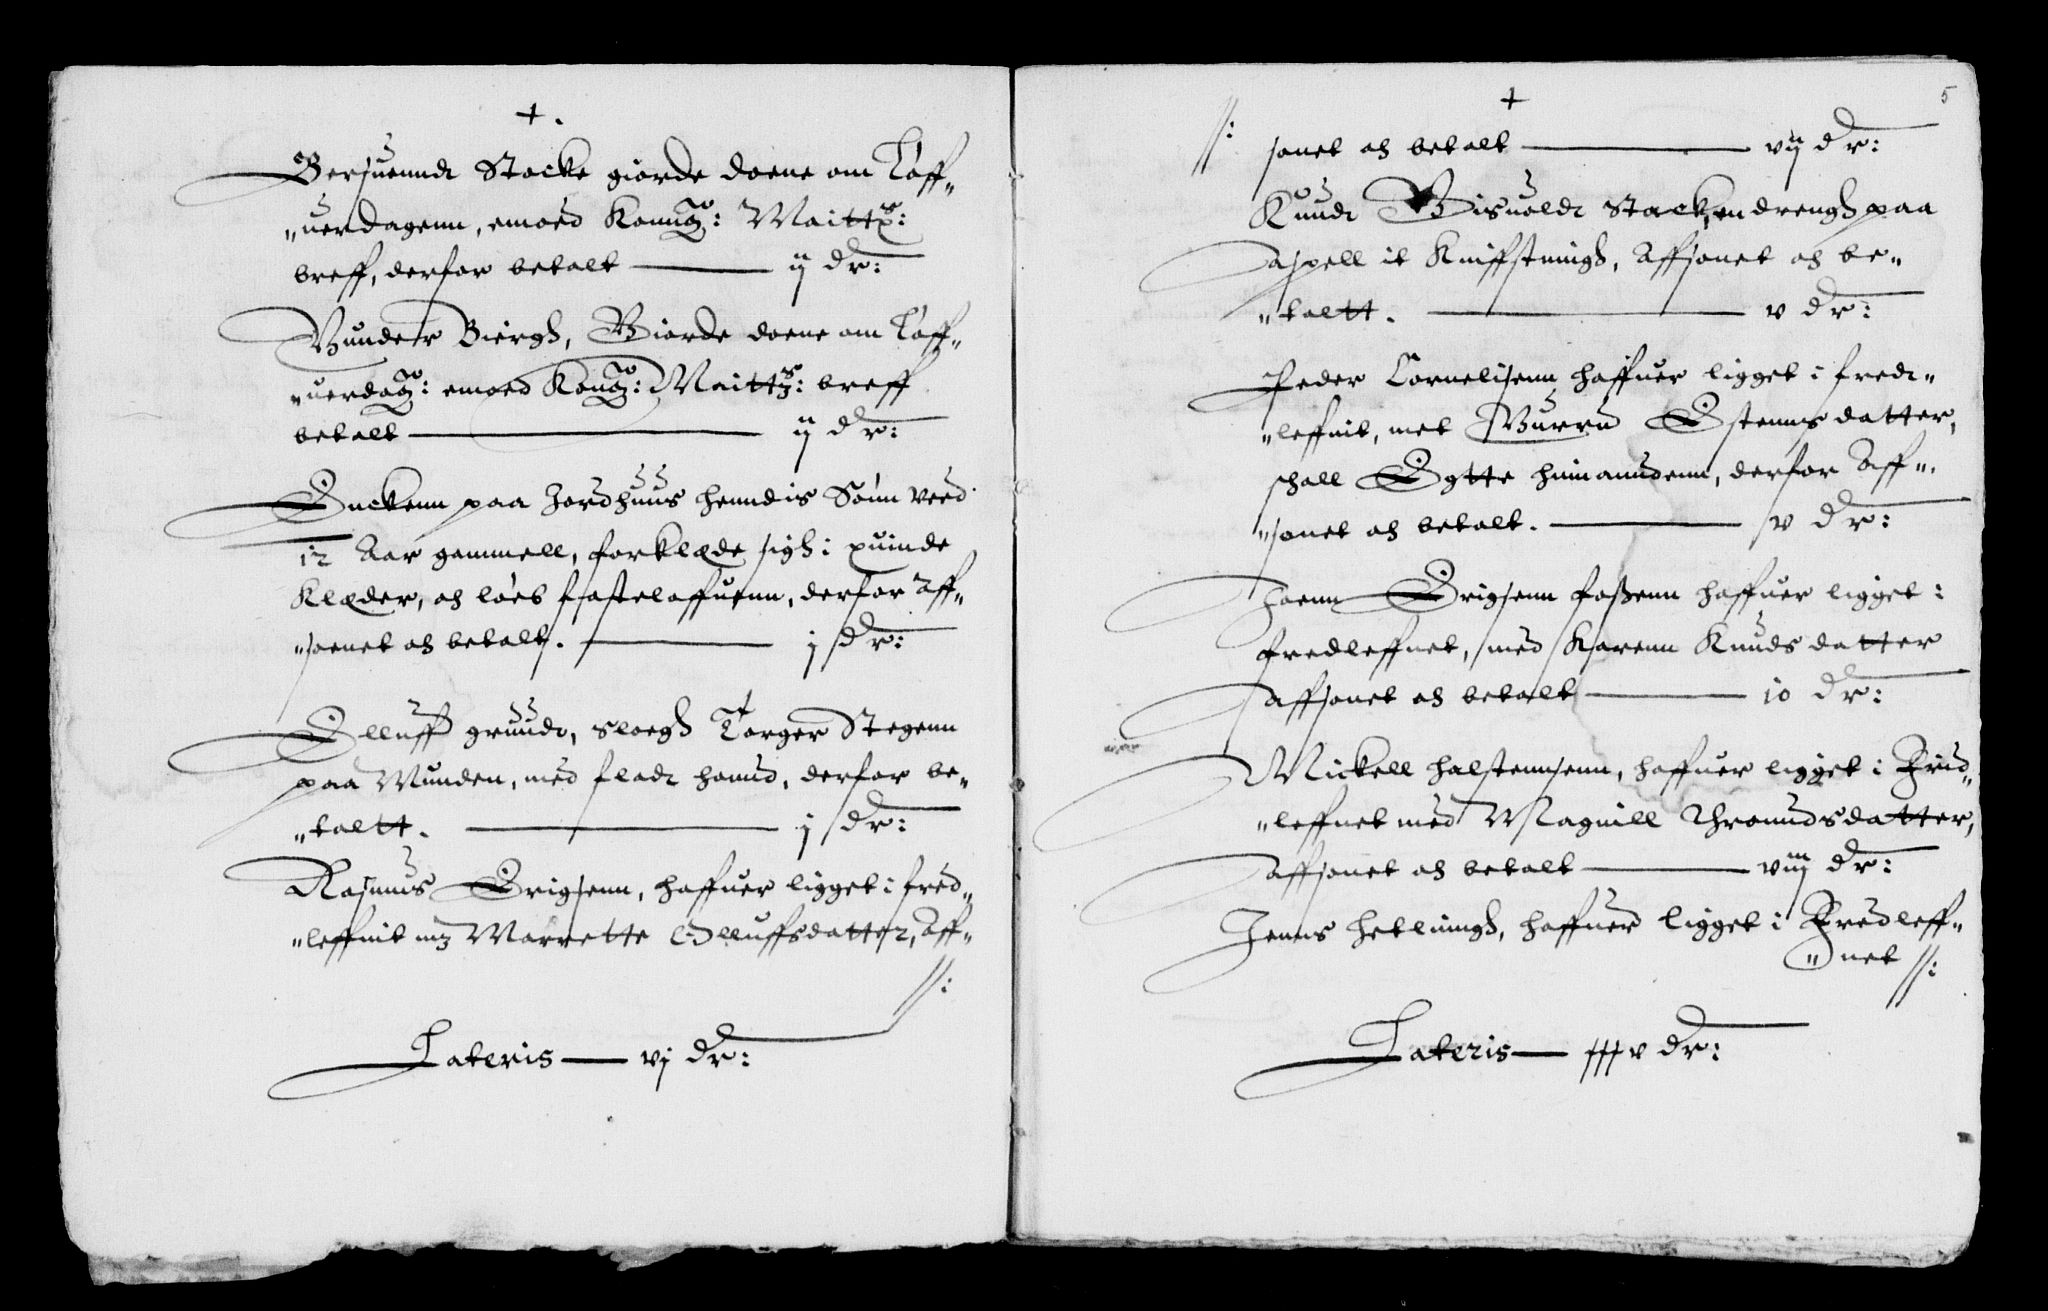 +.
Bersuennd Stocke giorde doene om Løff„
„uerdagenn, emoed Konng: Maittz:
breff, derfor betalt — ij dr:
Gunder Biergh, Giorde doene om Løff„
„uerdag: emoed Kong: Maittz: breff
betalt — ij dr:
Enckenn paa Jordhuus henndis Sønn veed
12 Aar gammell, forklæde sigh i quinde
Klæder, och løeb fastelaffuenn, derfor Aff„
„soenet och betalt. — j dr:
Olluff gruud, sloegh Torger Stegenn
paa Munden, med flad haand, derfor be„
„taltt. — j dr:
Rasmus Erigsenn, haffuer ligget i fred„
„leffnit mz Marrette Olluffsdatter, Aff„
//:
Lateris — vj dr:
+
5
//: sonet och betalt — vij dr:
Knud Gisuold Stack en drengh paa
aspell it Kniffstningh, Affsonet och be„
„taltt. — v dr:
Peder Cornelisenn haffuer ligget i fred„
„leffnit, met Gurru Ostenns datter,
schall Egtte hinanndenn, derfor Aff„
„sonet och betalt. — v dr:
Joenn Erigsenn foßenn haffuer ligget i
fredleffnet, med Karenn Knuds datter
affsonet och betalt — 10 dr:
Mickell halstennsenn, haffuer ligget i Fred„
„leffnet med Magnill Thronndsdatter,
affsonet och betalt — viij dr:
Jenns hetlningh, haffuer ligget i Fredleff„
„net //:
Lateris — xxxv dr: